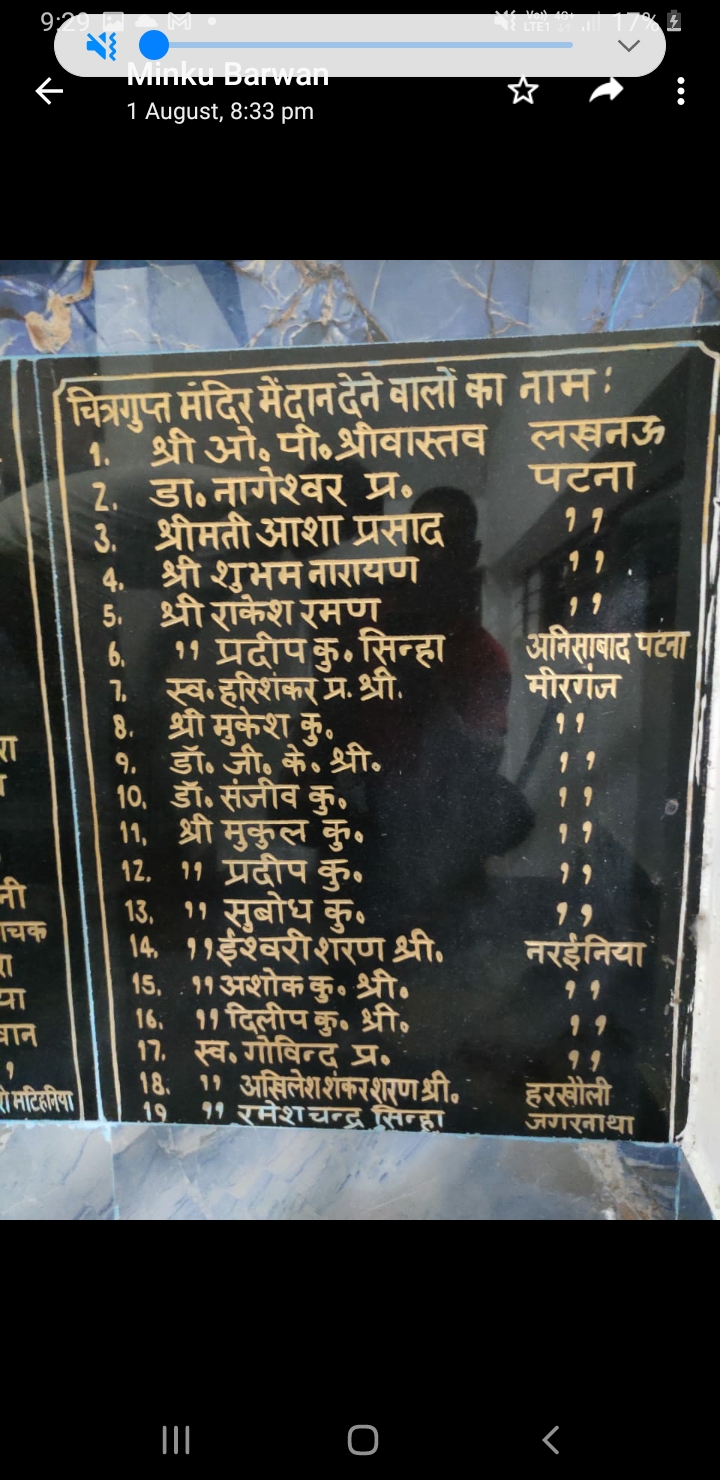 9:29
Voi) 4G+
LTE1
17%
Minku Barwan
1 August, 8:33 pm
चित्रगुप्त मंदिर में दान देने वालों का नाम :
1. श्री ओ. पी. श्रीवास्तव लखनऊ
2. डा. नागेश्वर प्र. पटना
3. श्रीमती आशा प्रसाद ,,
4. श्री शुभम नारायण ,,
5. श्री राकेश रमण ,,
6. ,, प्रदीप कु. सिन्हा अनिसाबाद पटना
7. स्व. हरिशंकर प्र. श्री. मीरगंज
8. श्री मुकेश कु. ,,
9. डॉ. जी. के. श्री. ,,
10. डॉ. संजीव कु. ,,
11. श्री मुकुल कु. ,,
12. ,, प्रदीप कु. ,,
13. ,, सुबोध कु. ,,
14. ,, ईश्वरी शरण श्री. नरईनिया
15. ,, अशोक कु. श्री. ,,
16. ,, दिलीप कु. श्री. ,,
17. स्व. गोविन्द प्र. ,,
18. ,, अखिलेश शंकर शरण श्री. हरखौली
19 ,, रमेश चन्द्र सिन्हा जगरनाथा
मटिहनिया